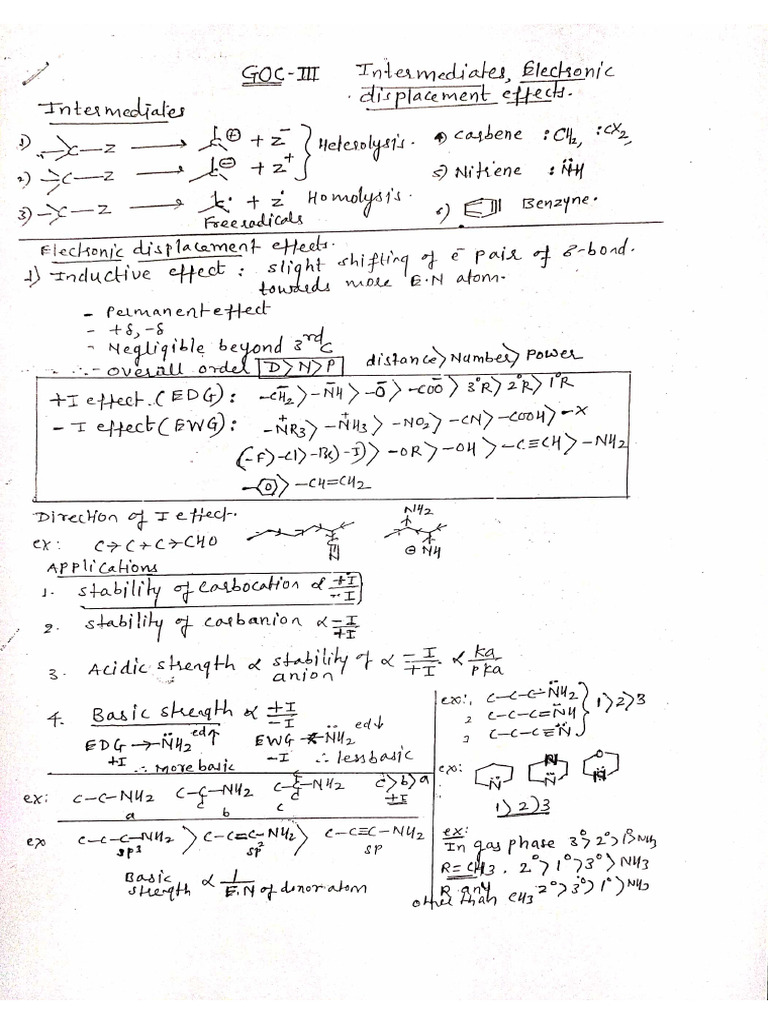 GOC-III Intermediates, Electronic
displacement effects.
Intermediates
1) -C-Z → C⊕ + Z⁻ } Heterolysis.
2) -C-Z → C⊖ + Z⁺
3) -C-Z → C• + Z• Homolysis.
Free radicals
4) carbene :CH2, :CX2,
5) Nitrene :N̈H
6) Benzyne.
Electronic displacement effects.
1) Inductive effect : slight shifting of e⁻ pair of 8-bond.
towards more E.N atom.
- Permanent effect
- +δ, -δ
- Negligible beyond 3rd C
∴- overall order D>N>P distance>Number>Power
+I effect.(EDG): -C̄H2>-N̄H>-Ō>-COŌ>3°R>2°R>1°R
-I effect(EWG): -N⁺R3>-N⁺H3>-NO2>-CN>-COOH>-X
(-F>-Cl>-Br>-I)>-OR>-OH>-C≡CH>-NH2
>-CH=CH2
Direction of I effect.
ex: C→C→C→CHO
NH2
⊖ NH
Applications
1. stability of carbocation α +I/-I
2. stability of carbanion α -I/+I
3. Acidic strength α stability of anion α -I/+I α ka/pka
4. Basic strength α +I/-I
EDG→N̈H2 ed↑ EWG N̈H2 ed↓
+I ∴ More basic -I ∴ less basic
ex: C-C-NH2 C-C-NH2 C-C-NH2 c>b>a
C C C
a b c +I
ex C-C-C-NH2 > C-C=C-NH2 > C-C≡C-NH2
sp3 sp2 sp
Basic strength α 1/E.N of donor atom
ex:, C-C-C-N̈H2 } 1>2>3
2 C-C-C=N̈H
3 C-C-C≡N̈
ex: N̈ O
1>2>3
ex:
In gas phase 3°>2°>1°>NH3
R=CH3. 2°>1°>3°>NH3
R any 2°>3°>1°>NH3
other than CH3